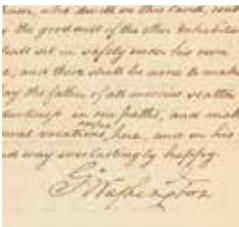 ham, who dwell in this land, cont
y the good will of the other Inhabitan
hall sit in safety under his own
e, and there shall be none to make
ay the father of all mercies scatter
darkness in our paths, and make
useful
veral vocations here, and in his
nd way everlastingly happy.
G. Washington